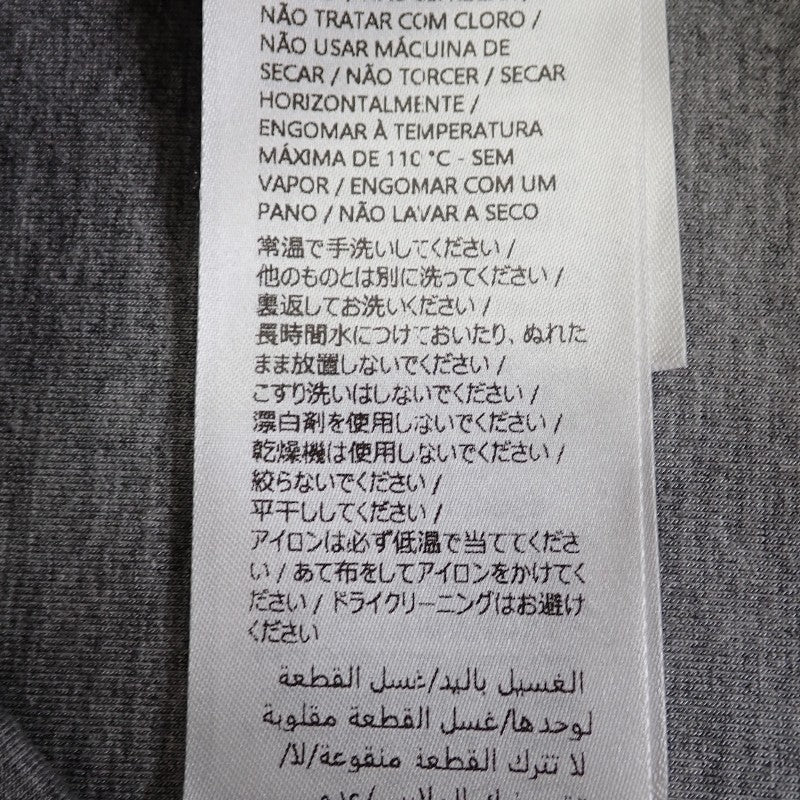 NÃO TRATAR COM CLORO /
NÃO USAR MÁCUINA DE
SECAR / NÃO TORCER / SECAR
HORIZONTALMENTE /
ENGOMAR À TEMPERATURA
MÁXIMA DE 110 °C - SEM
VAPOR / ENGOMAR COM UM
PANO / NÃO LAVAR A SECO
常温で手洗いしてください /
他のものとは別に洗ってください /
裏返してお洗いください /
長時間水につけておいたり、ぬれた
まま放置しないでください /
こすり洗いはしないでください /
漂白剤を使用しないでください /
乾燥機は使用しないでください /
絞らないでください /
平干ししてください /
アイロンは必ず低温で当ててくださ
い / あて布をしてアイロンをかけてく
ださい / ドライクリーニングはお避け
ください
الغسيل باليد/غسل القطعة
لوحدها/غسل القطعة مقلوبة
لا تترك القطعة منقوعة/لا/